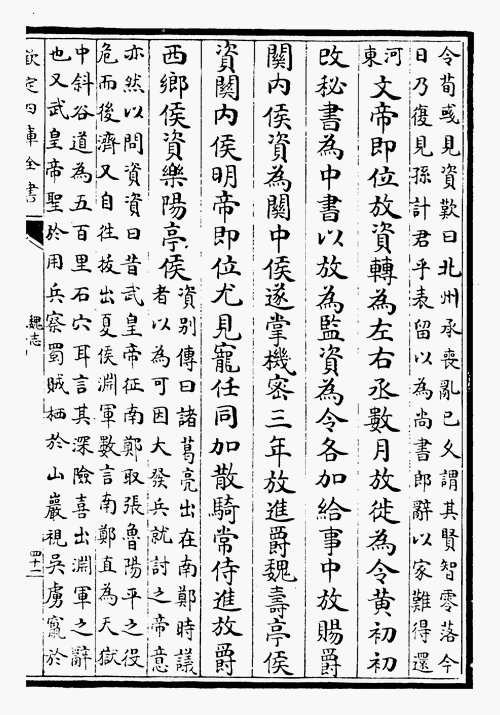 令荀彧見資歎曰北州承喪亂已久謂其賢智零落今
日乃復見孫計君乎表留以為尚書郎辭以家難得還
河
東
文帝即位放資轉為左右丞數月放徙為令黃初初
改秘書為中書以放為監資為令各加給事中放賜爵
關内侯資為關中侯遂掌機密三年放進爵魏壽亭侯
資關内侯明帝即位尤見寵任同加散騎常侍進放爵
西鄉侯資樂陽亭侯
資别傳曰諸葛亮出在南鄭時議
者以為可因大發兵就討之帝意
亦然以問資資曰昔武皇帝征南鄭取張魯陽平之役
危而後濟又自往拔出夏侯淵軍數言南鄭直為天獄
中斜谷道為五百里石穴耳言其深險喜出淵軍之辭
也又武皇帝聖於用兵察蜀賊栖於山巖視吳虜竄於
欽定四庫全書
魏志
四十二